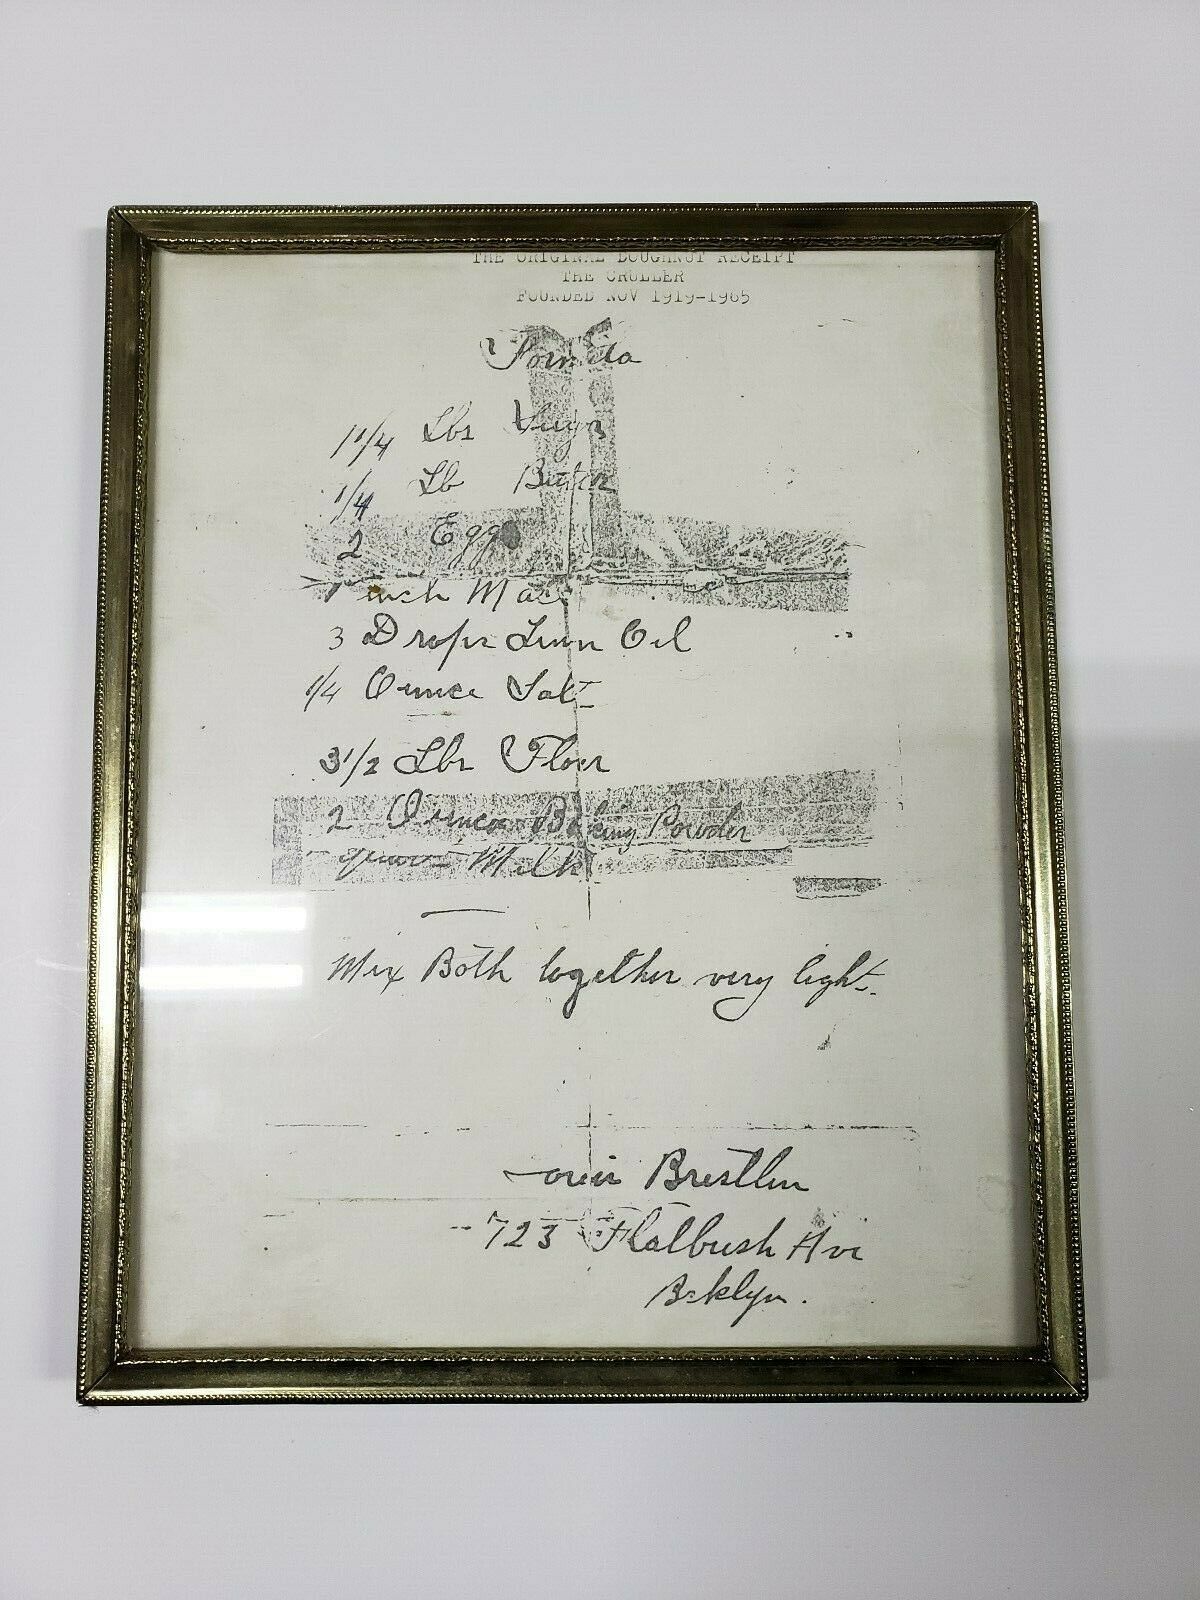 THE ORIGINAL DOUGHNUT RECEIPT
THE CRULLER
FOUNDED NOV 1919-1965
1 1/4 Lbs Sugar
1/4 Lb Butter
2 Eggs
Mace
3 Drops Lemon Oil
1/4 Ounce Salt
3 1/2 Lbs Flour
2 Ounces Baking Powder
Milk
Mix Both together very light.
723 Flatbush Ave
Bklyn.